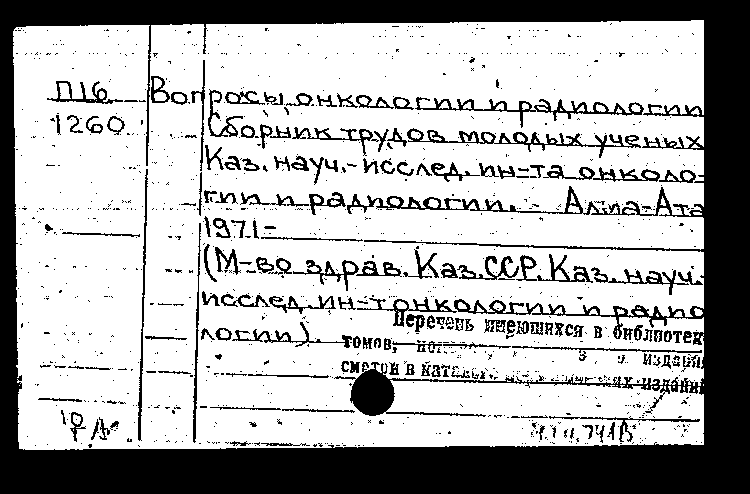 П16 Вопросы онкологии и радиологии
1260 Сборник трудов молодых ученых
Каз. науч.-исслед. ин-та онколо-
гии и радиологии. - Алма-Ата
1971-
(М-во здрав. Каз.ССР. Каз. науч.-
исслед. ин-т онкологии и радио
логии).
Перечень имеющихся в библиотек
томов,
издания
смотри в
изданий